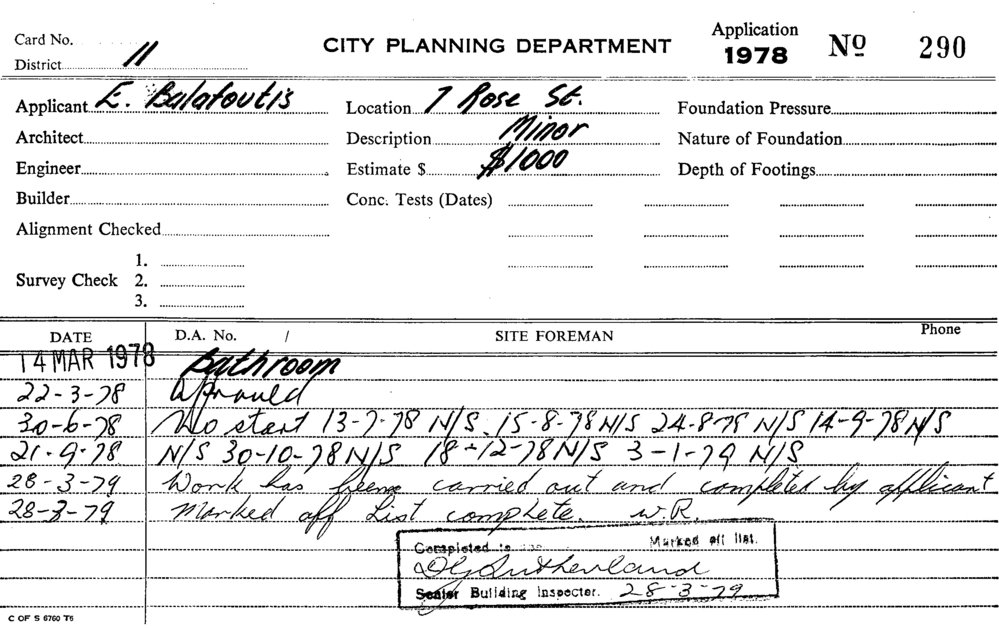 Card No.
District 11
CITY PLANNING DEPARTMENT
Application
1978 Nº 290
Applicant E. Balafoutis Location 7 Rose St. Foundation Pressure
Architect Description Minor Nature of Foundation
Engineer Estimate $ $1000 Depth of Footings
Builder Conc. Tests (Dates)
Alignment Checked
1.
Survey Check 2.
3.
DATE D.A. No. / SITE FOREMAN Phone
14 MAR 1978 Bathroom
22-3-78 Approved
30-6-78 No start 13-7-78 N/S. 15-8-78 N/S 24-8-78 N/S 14-9-78 N/S
21-9-78 N/S 30-10-78 N/S 18-12-78 N/S 3-1-79 N/S
28-3-79 Work has been carried out and completed by applicant
28-3-79 Marked off List complete. W.R.
Completed to Marked off list.
DG Sutherland
Senior Building Inspector. 28-3-79
C OF S 6760 T6